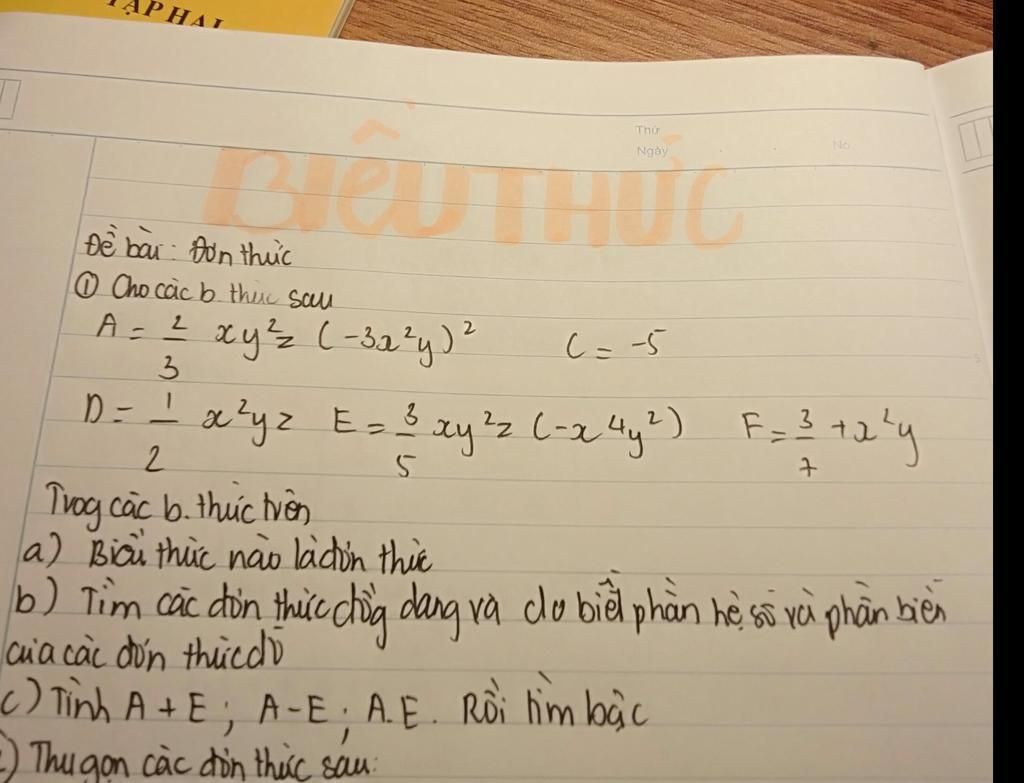 TẬP HAI
Thứ
Ngày
No
BIỂU THỨC
Đề bài: Đơn thức
① Cho các b. thức sau
A = 2/3 xy²z (-3x²y)² C = -5
D = 1/2 x²yz E = 3/5 xy²z (-x⁴y²) F = 3/7 + x²y
Trog các b. thức trên
a) Biểu thức nào là đơn thức
b) Tìm các đơn thức đồg dạng và cho biết phần hệ số và phần biến
của các đơn thức đó
c) Tính A + E ; A - E ; A.E. Rồi tìm bậc
) Thu gọn các đơn thức sau: